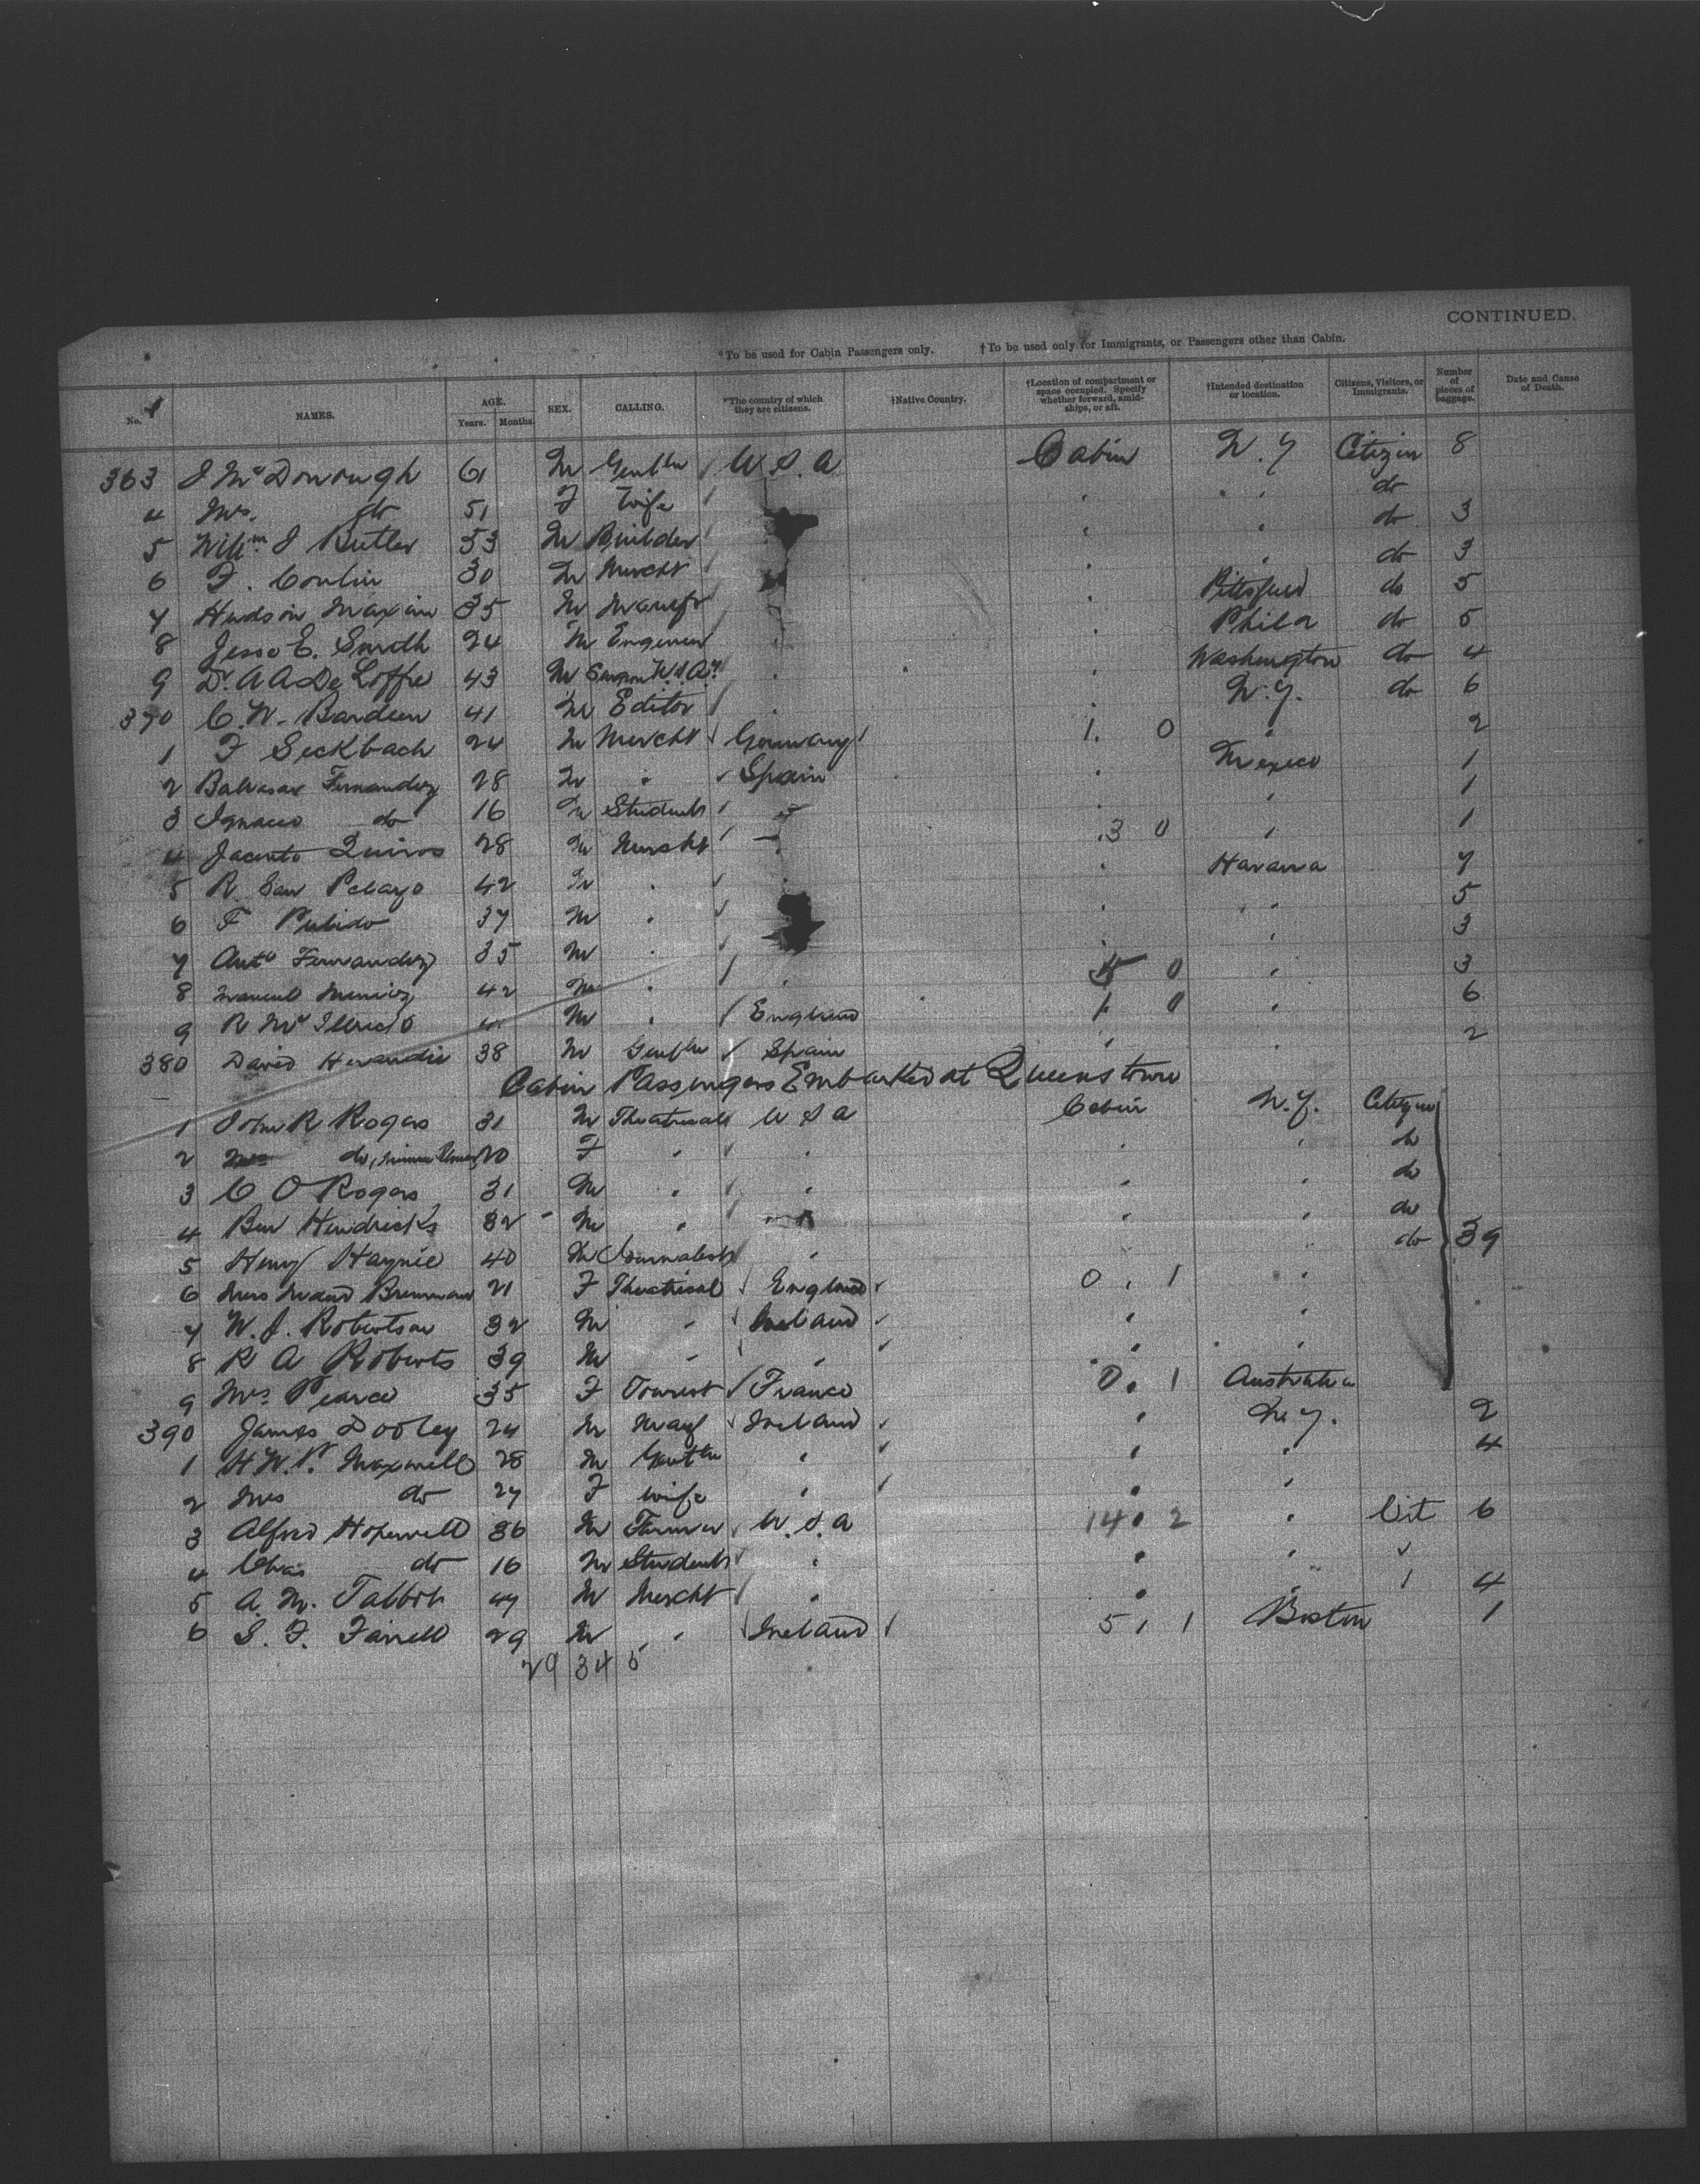 CONTINUED.
*To be used for Cabin Passengers only. †To be used only for Immigrants, or Passengers other than Cabin.
No. NAMES. AGE. Years. Months. SEX. CALLING. *The country of which they are citizens. †Native Country. †Location of compartment or space occupied. Specify whether forward, amidships, or aft. †Intended destination or location. Citizens, Visitors, or Immigrants. Number of pieces of baggage. Date and Cause of Death.
363 J McDonough 61 M Gentln U.S.A Cabin N.Y Citizen 8
4 Mrs. do 51 F Wife do
5 Willm J Butler 53 M Builder do 3
6 F. Conlin 30 M Mercht do 3
7 Hudson Maxim 35 M Manufr Pittsfield do 5
8 Jesse E. Smith 24 M Engineer Phila do 5
9 Dr. A A De Loffre 43 M Surgeon U.S.Ay. Washington do 4
370 C. W. Bardeen 41 M Editor N.Y. do 6
1 F Seckbach 24 M Mercht Germany 1. 0 2
2 Fernandez 28 M " Spain Mexico 1
3 Ignacio do 16 M Students 1
4 Jacinto Quiros 28 M Mercht 3 0 1
5 R San Pelayo 42 M Havana 7
6 F Pulido 37 M 5
7 Anto Fernandez 35 M 3
8 Manuel 42 M 0 3
9 R Mc M England 1 0 6
380 David 38 M Gentln Spain 2
Cabin Passengers Embarked at Queenstown
1 John R Rogers 31 M Theatricals U S A Cabin N.Y. Citizen
2 do, 20 F " do
3 C O Rogers 31 M " do
4 Ben Hendricks 32 M " do
5 Henry Haynie 40 M Journalist do 39
6 Miss Maud Brennan 21 F Theatrical England 0 . 1
7 W. J. Robertson 32 M " Ireland
8 R A Roberts 39 M "
9 Mrs Pearce 35 F Tourist France 0. 1 Australia
390 James Dooley 24 M Ireland N.Y. 2
1 H W. P. Maxwell 28 M Gentln 4
2 Mrs do 27 F wife
3 Alfred Hopewell 36 M Farmer U.S.A 14 . 2 Cit 6
4 Chas do 16 M Students
5 A. M. Talbot 47 M Mercht 4
6 S. F. Farrell 29 M " Ireland 5 , 1 Boston 1
29 34 5